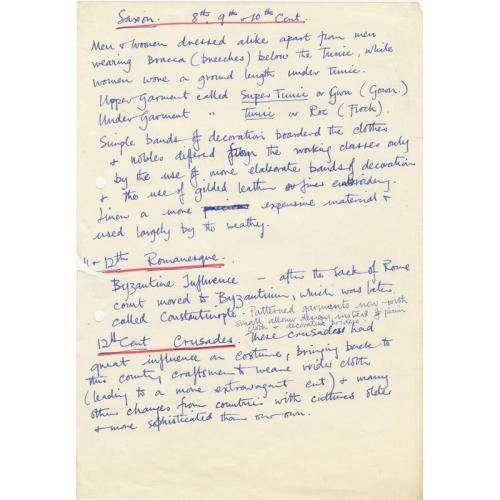 Saxon. 8th, 9th & 10th Cent.
Men & women dressed alike apart from men
wearing Bracca (breeches) below the Tunic, while
women wore a ground length under Tunic.
Upper Garment called Super Tunic or Gwn (Gown.)
Under-Garment " Tunic or Roc (Frock).
Simple bands of decoration boarderd the clothes
& nobles differed from the working classes only
by the use of more elaborate bands of decoration
& the use of gilded leather or fines embroidery.
Linen a more expensive material &
used largely by the weathy.
11 & 12th Romanesque.
Byzantine Influence – after the Sack of Rome
court moved to Byzantium, which was later
called Constantinople. Patterned garments now with
small allover designs instead of plain
cloth & decorative borders.
12th Cent Crusades. These crusades had
great influence on costume, bringing back to
this country craftsmen to weave wider cloth
(leading to a more extravagant cut) & many
other changes from countries with cultures older
& more sophisticated than our own.